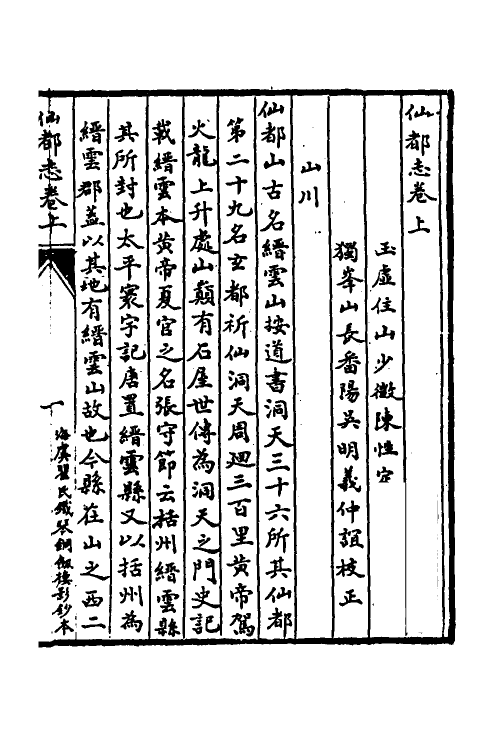 仙都志卷上
玉虛住山少微陳性定
獨峯山長番陽吳明義仲誼校正
山川
仙都山古名縉雲山按道書洞天三十六所其仙都
第二十九名玄都祈仙洞天周廻三百里黄帝駕
火龍上升處山巔有石屋世傳為洞天之門史記
載縉雲本黄帝夏官之名張守節云括州縉雲縣
其所封也太平寰宇記唐置縉雲縣又以括州為
縉雲郡蓋以其地有縉雲山故也今縣在山之西二
仙都志卷上
一
海虞瞿氏鐵琴銅劍樓影鈔本